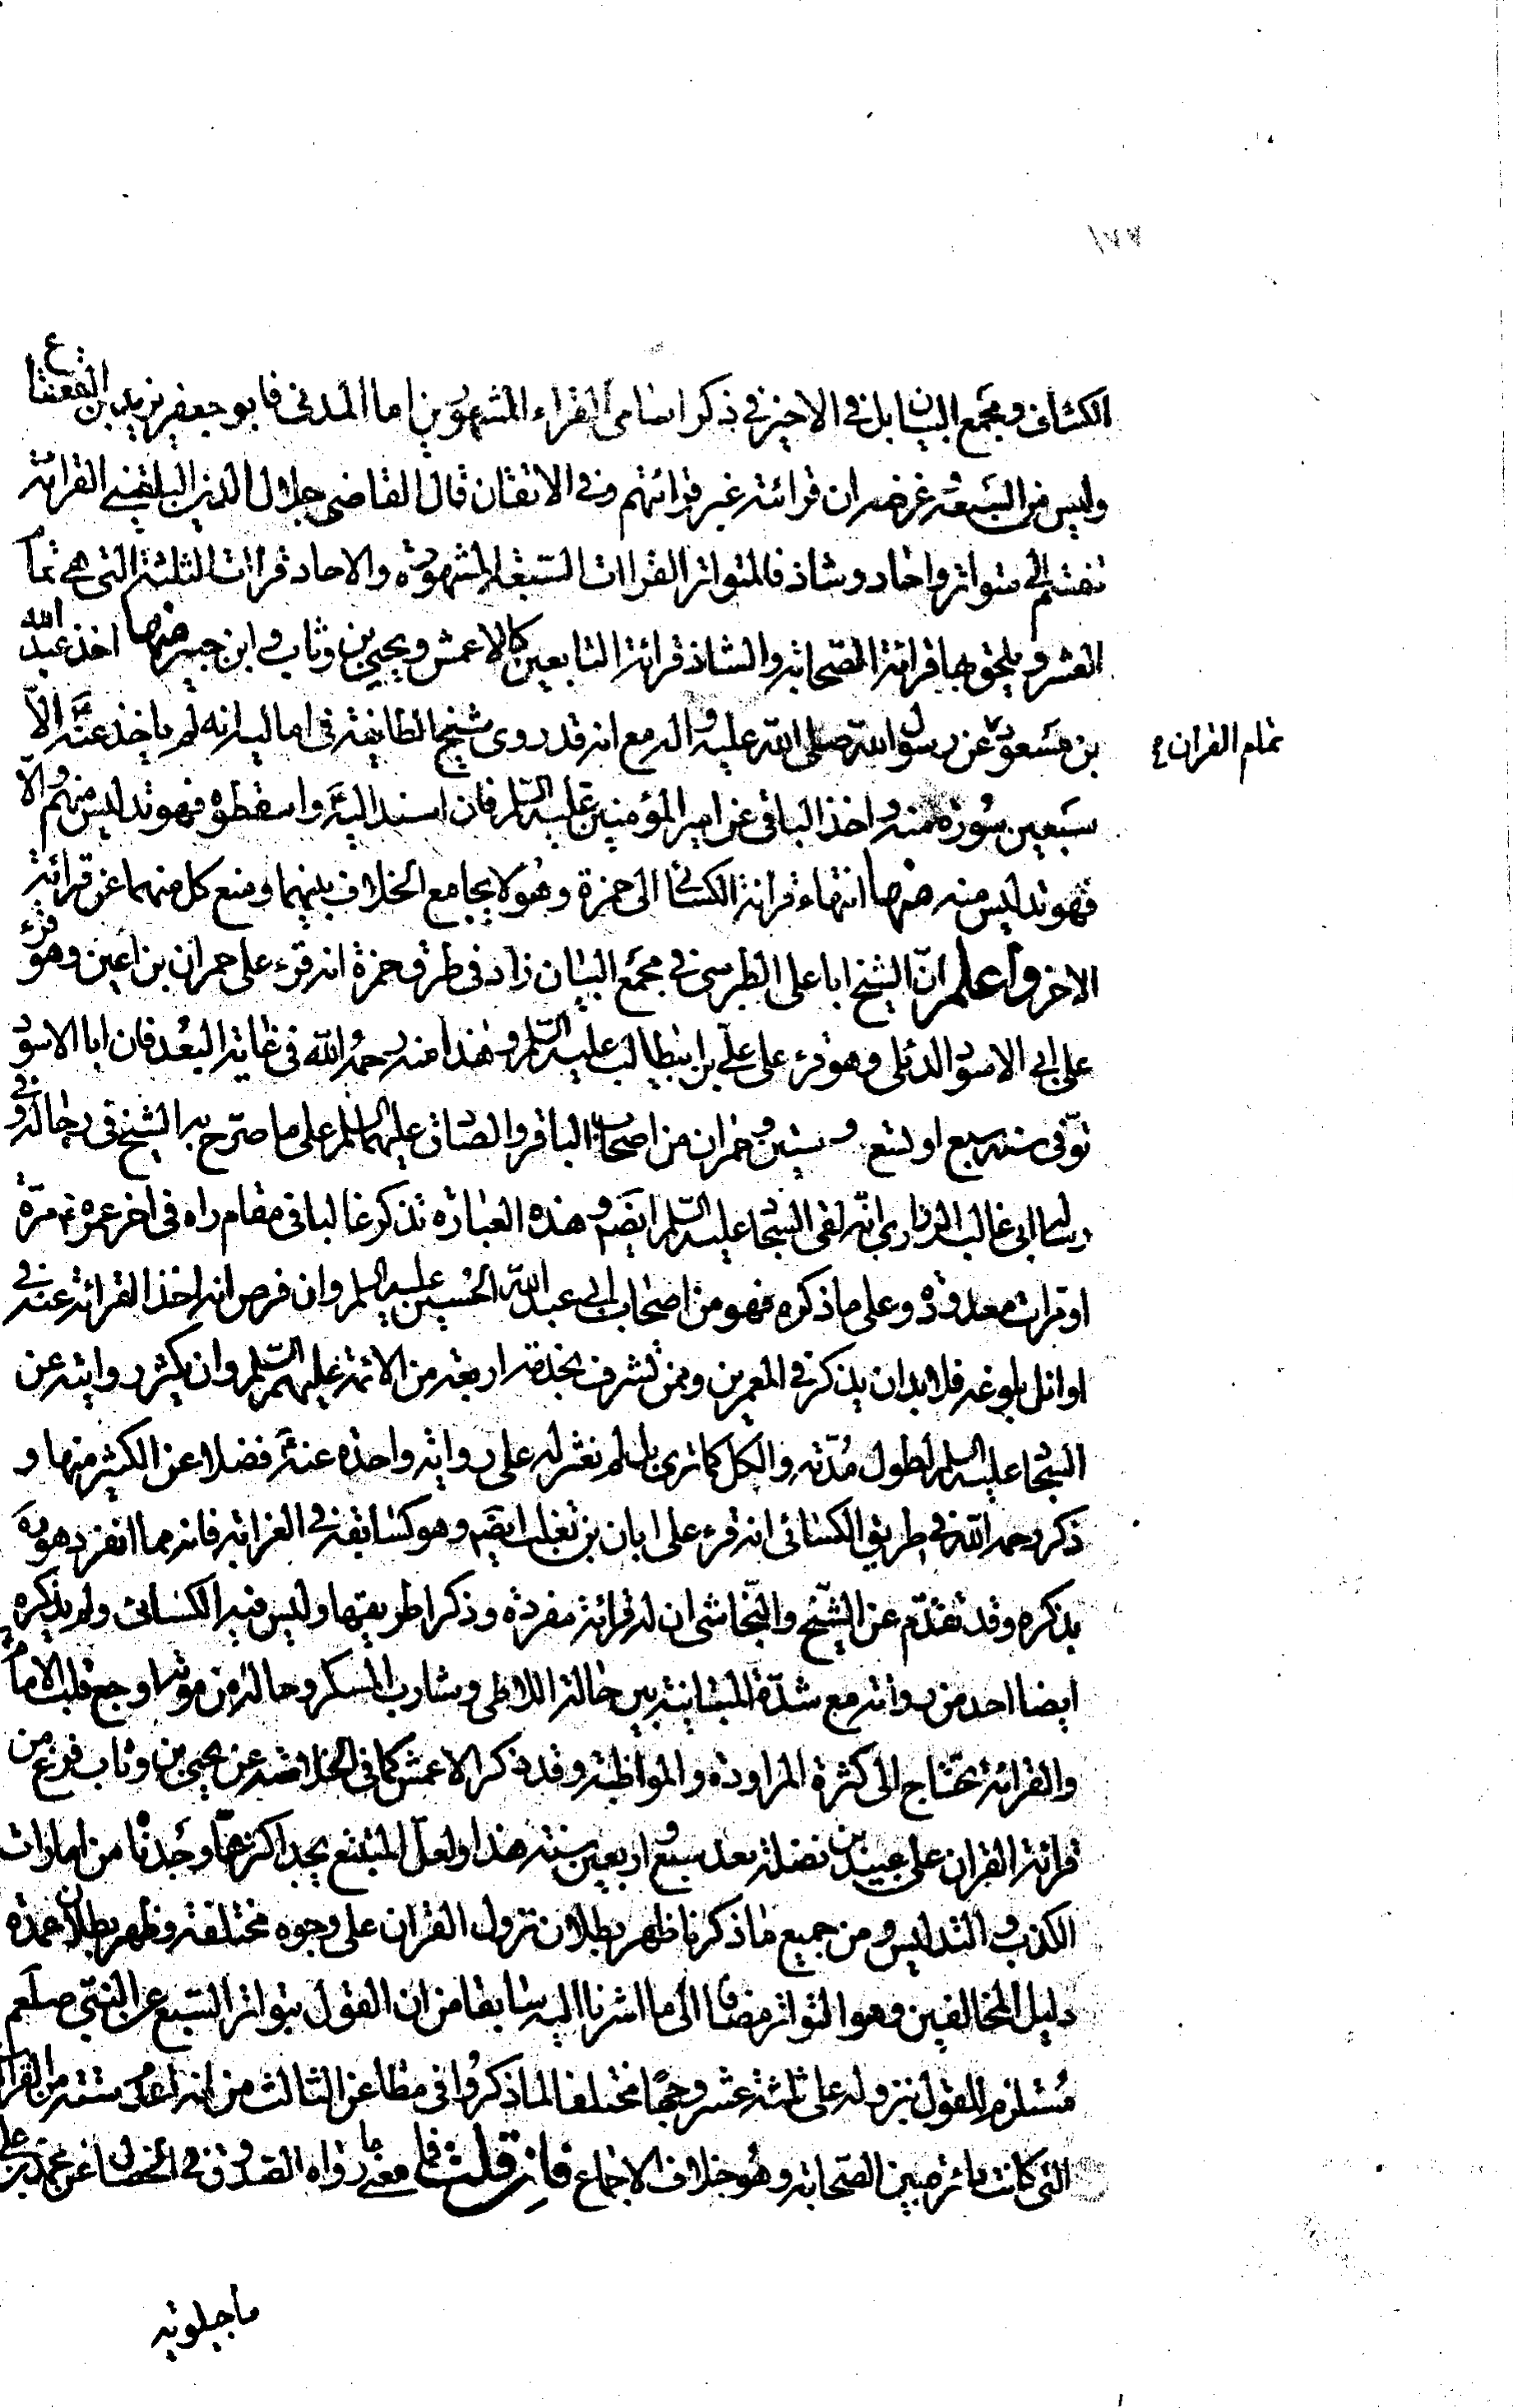 ١٨٨
الكشاف ومجمع البيان بل في الاخير في ذكر اسامى القراء المشهورين اما المدنى فابو جعفر يزيد بن القعقاع
وليس من السبعة غرضه ان قرائته غير قرائتهم وفي الاتقان قال القاضى جلال الدين البلقينى القرائة
تنقسم الى متواتر واحاد وشاذ فالمتواتر القراات السبعة المشهورة والاحاد قراات الثلثة التى هى تمام
العشر ويلحق بها قرائة الصحابة والشاذ قرائة التابعين كالاعمش ويحيى بن وثاب وابن جبير منها اخذ عبد الله
بن مسعود عن رسول الله صلى الله عليه واله مع انه قد روى شيخ الطايفة في اماليه انه لم ياخذ عنه الا
تمام القران
سبعين سورة منه واخذ الباقى عن امير المؤمنين عليه السلم فان اسند اليه واسقطوه فهو تدليس منهم والا
فهو تدليس منه منها انتهاء قرائة الكسائى الى حمزة وهو لا يجامع الخلاف بينهما ومنع كل منهما عن قرائة
الاخر واعلم انّ الشيخ ابا على الطبرسى في مجمع البيان زاد فى طرق حمزة انه قرء على حمران بن اعين وهو قرء
على ابى الاسود الدئلى وهو قرء على على بن ابيطالب عليه السلم وهذا منه رحمه الله فى غاية البعد فان ابا الاسود
توفى سنة سبع او تسع وستين وحمران من اصحاب الباقر والصادق عليهما السلم على ما صرّح به الشيخ في رجاله وفي
رسالة ابى غالب الزرارى انه لقى السجاد عليه السلم ايضم وهذه العبارة تذكر غالبا في مقام راه في اخر عمره مرّة
او مرات معدودة وعلى ما ذكره فهو من اصحاب ابى عبد الله الحسين عليه السلم وان فرض انه اخذ القرائة عنه في
اوائل بلوغه فلا بد ان يذكر في المعمرين وممن تشرف بخدمة اربعة من الائمة عليهم السلم وان يكثر روايته عن
السجاد عليه السلم لطول مدّته والكل كما ترى بل لم نعثر له على رواية واحدة عنه فضلا عن الكثير منها و
ذكر رحمه الله في طريق الكسائى انه قرء على ابان بن تغلب ايضم وهو كسابقه في الغرابة فانه مما انفرد هو به
بذكره وقد تقدّم عن الشيخ والنجاشى ان له قرائة مفردة وذكرا طريقها وليس فيه الكسائى ولم يذكره
ايضا احد من رواته مع شدّة المباينة بين حالة اللاطى وشارب المسكر وحالة من موته اوجع قلب الامام
والقرائة تحتاج الى كثرة المراودة والمواظبة وقد ذكر الاعمش كما في الخلاصة عن يحيى بن وثاب فرغ من
قرائة القران على عبيد بن نضلة بعد سبع واربعين سنة هذا ولعل المتتبع يجد اكثر مما وجدنا من امارات
الكذب والتدليس ومن جميع ما ذكرنا ظهر بطلان نزول القران على وجوه مختلفة وظهر بطلان عمدة
دليل المخالفين وهو التواتر مضافا الى ما اشرنا اليه سابقا من ان القول بتواتر السبع عن النبى صلعم
مستلزم للقول بنزوله على ثلثة عشر وجها مختلفا لما ذكروا فى مطاعن الثالث من انه اعدم ستة من القران
التى كانت دائرة بين الصحابة وهو خلاف الاجماع فان قلت فما معنى ما رواه الصدوق في الخصال عن محمد بن على
ماجيلويه